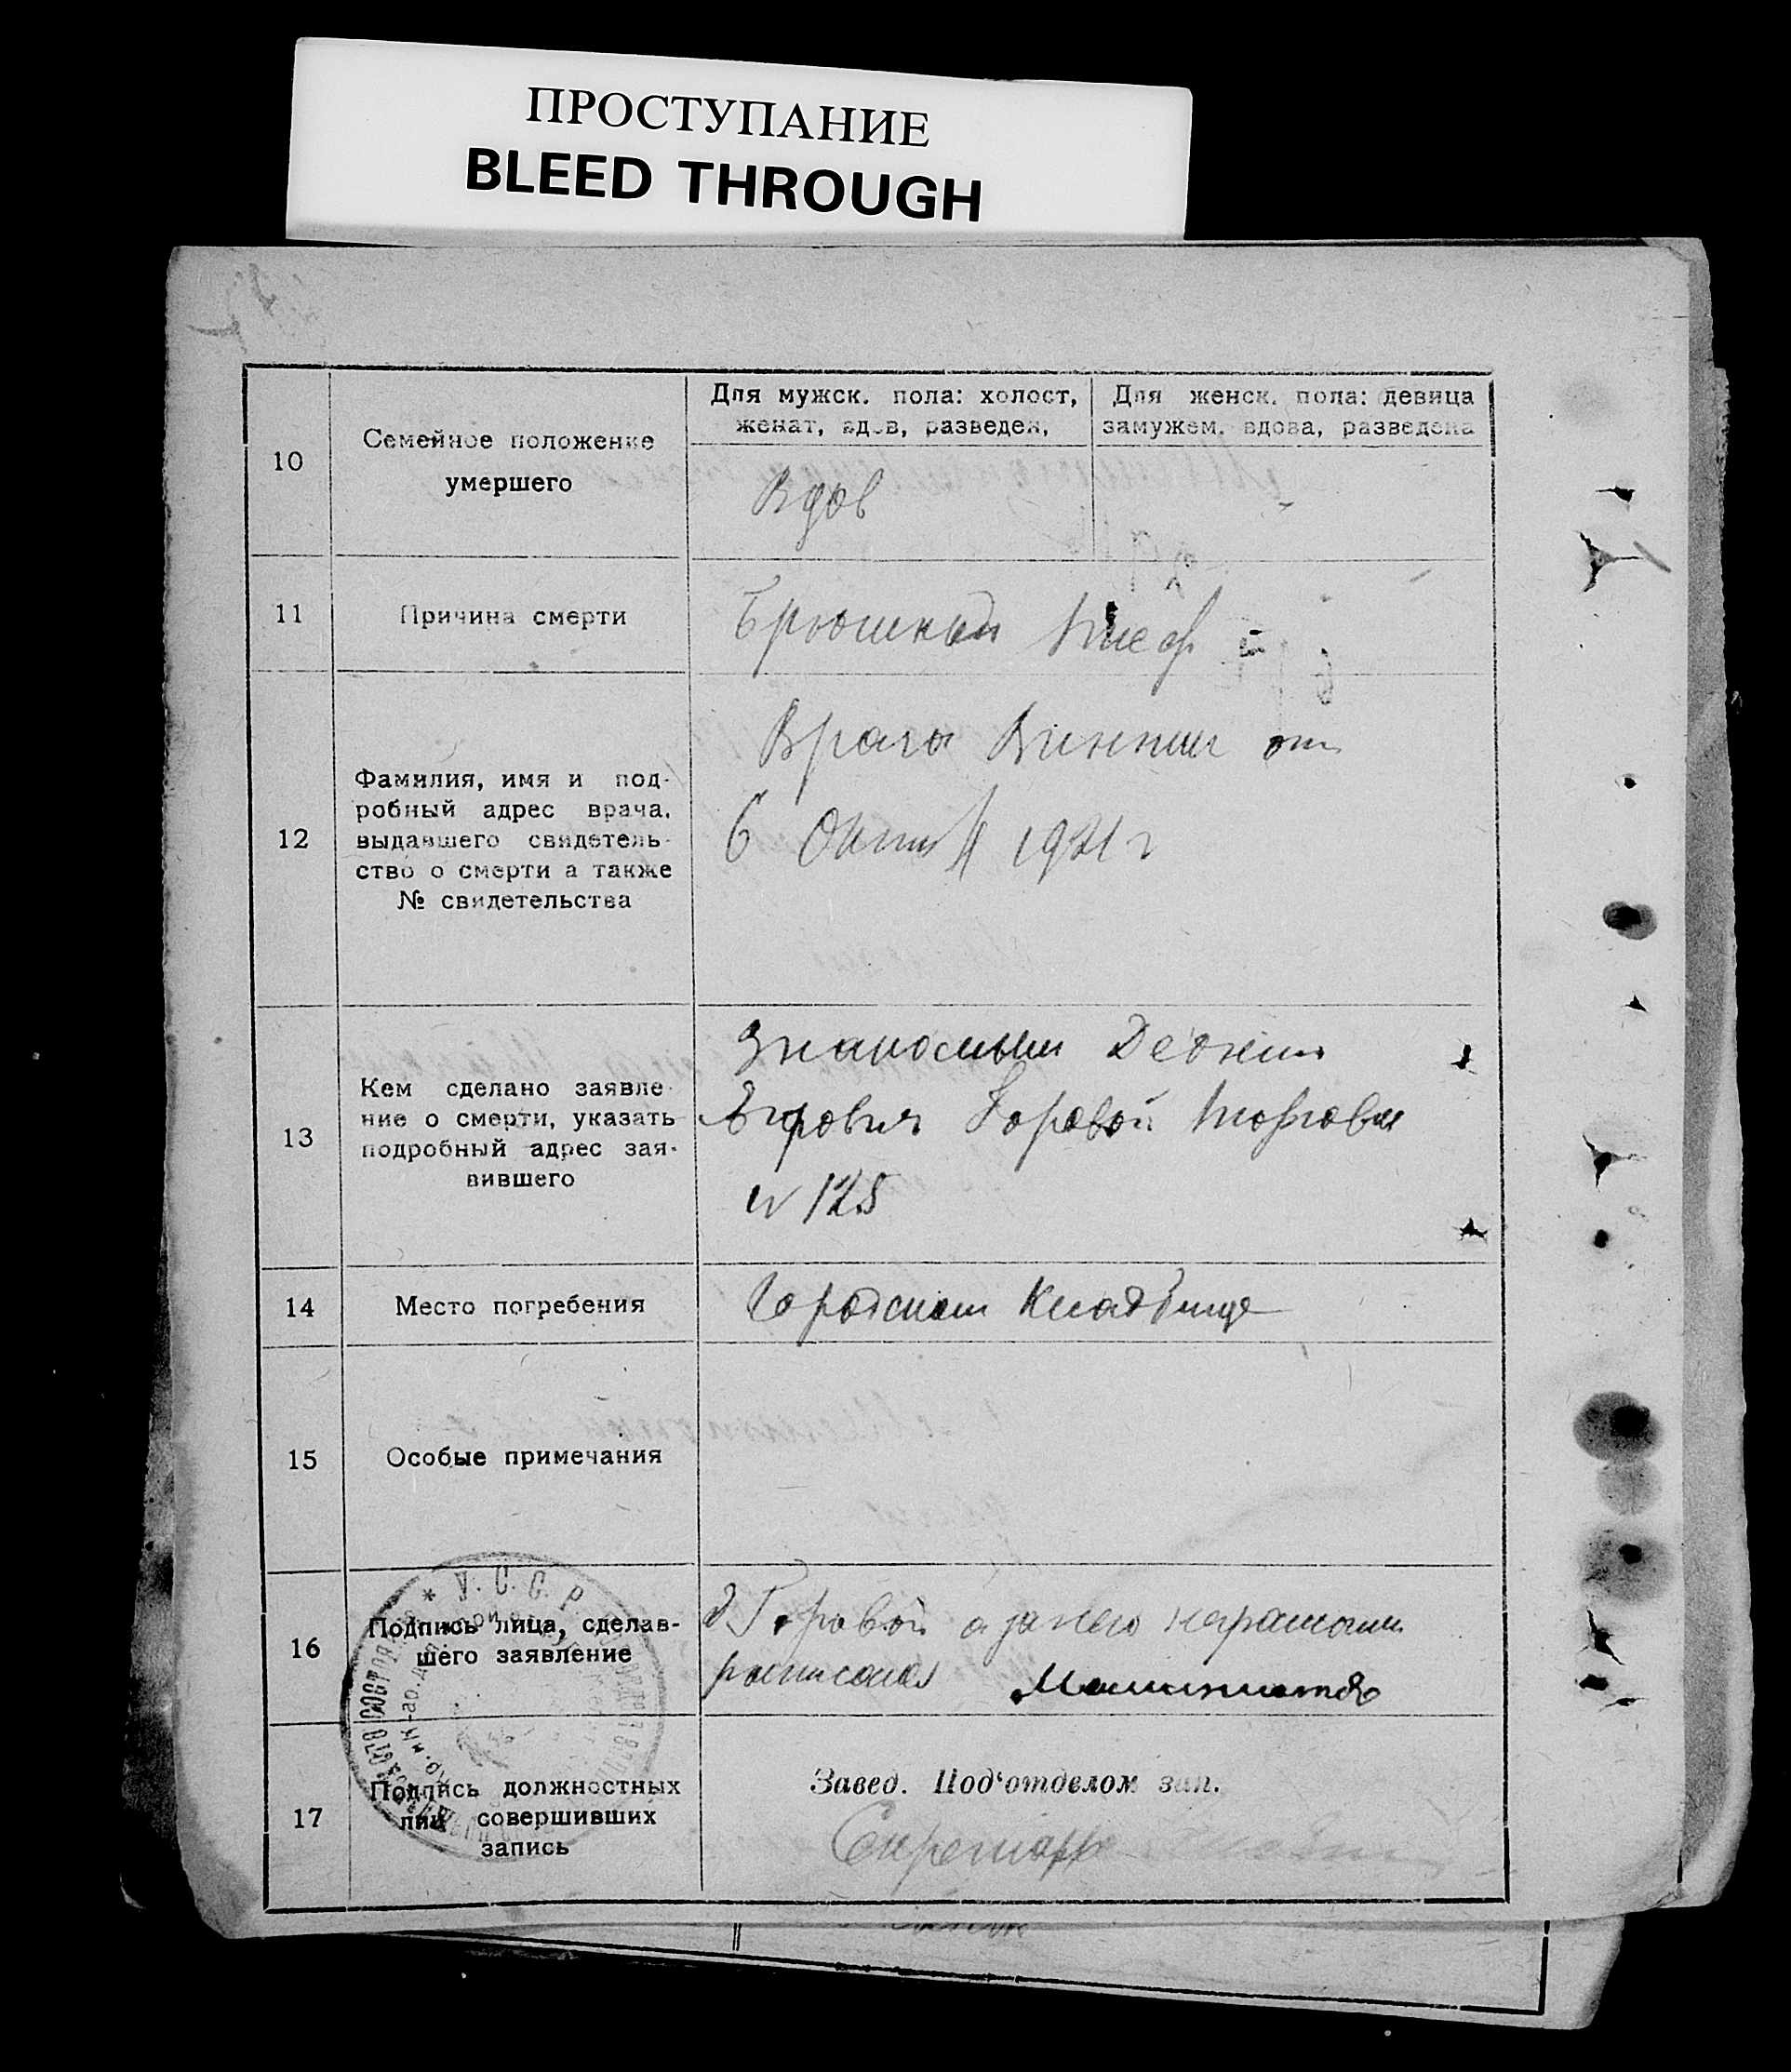 ПРОСТУПАНИЕ
BLEED THROUGH
10
Семейное положение
умершего
Для мужск. пола: холост,
женат, вдов, разведен,
Для женск. пола: девица
замужем, вдова, разведена
Вдов
-
11
Причина смерти
Брюшной тиф
12
Фамилия, имя и под-
робный адрес врача,
выдавшего свидетель-
ство о смерти а также
№ свидетельства
Врача от
6 1921 г
13
Кем сделано заявле-
ние о смерти, указать
подробный адрес зая-
вившего
Знакомым
Горовой Торговая
№ 125
14
Место погребения
Городском Кладбище
15
Особые примечания
16
Подпись лица, сделав-
шего заявление
Горовой а за него неграмотн
расписался
17
Подпись должностных
лиц совершивших
запись
Завед. Под‘отделом зап.
Секретарь
* У. С. С. Р.